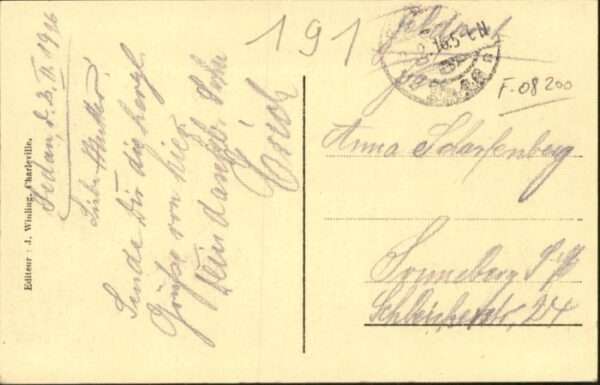 Editeur : J. Winling, Charleville.
Sedan, d. 2. II. 1916
Liebe Mutter!
Sende Dir die herzl.
Grüße von hier
Dein dankb. Sohn
Erich
191
Feldpost
F-08200
Anna Scharfenberg
Sonneberg S/M
Schleicherstr, 24